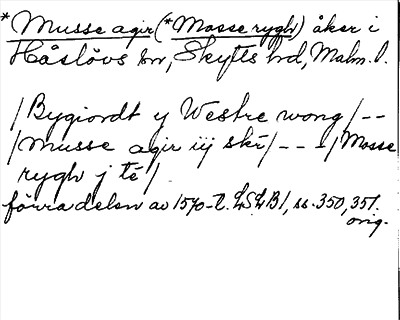 *Musse agir (*Mosse rygh) åker i
Håslövs sn, Skytts hd, Malm. l.
/Bygiordt y Westre wong/--
/Musse agir iij skr/---/Mosse
rygh j te/
förra delen av 1570-t. LSLB1, ss. 350, 351.
orig.